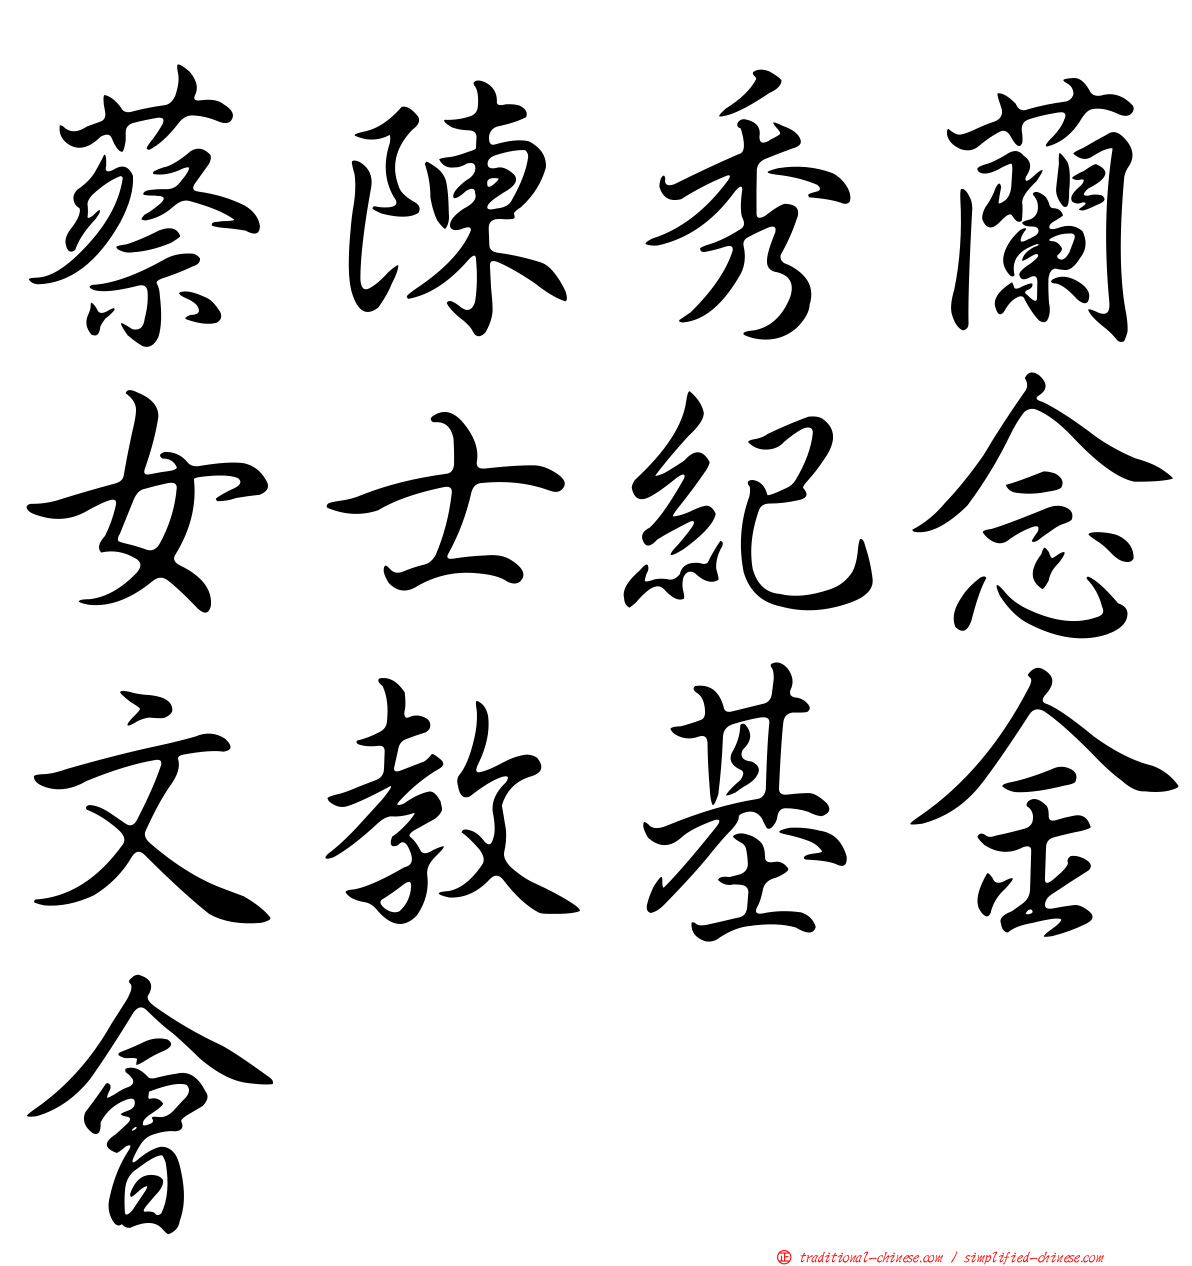 蔡陳秀蘭
女士紀念
文教基金
會
正 traditional-chinese.com / simplified-chinese.com